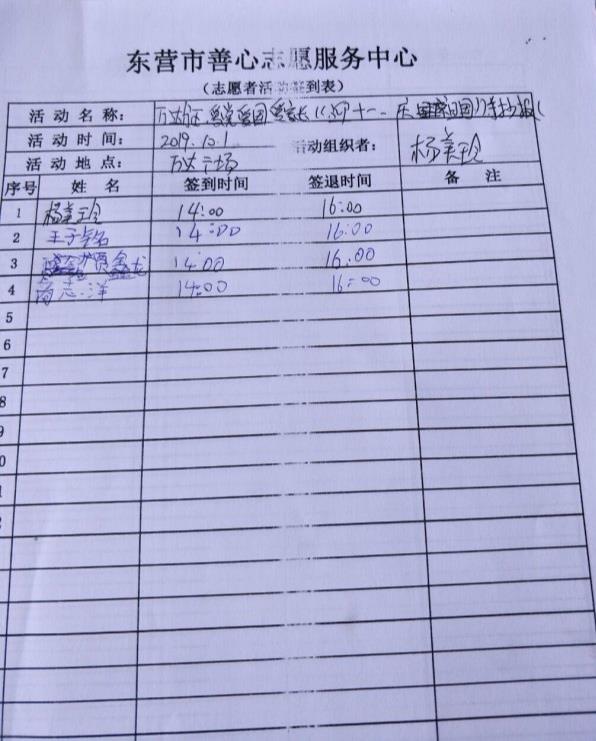 东营市善心志愿服务中心
（志愿者活动签到表）
活动名称：
活动时间： 2019.10.1 活动组织者： 杨美玲
活动地点： 万达广场
序号 姓名 签到时间 签退时间 备注
1 杨美玲 14:00 16:00
2 王子 14:00 16:00
3 贾鑫龙 14:00 16:00
4 志洋 14:00 16:00
5
6
7
8
9
0
1
2